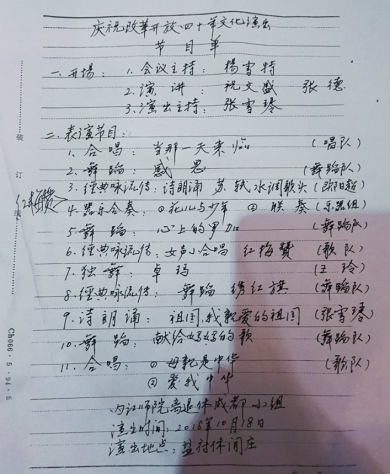 庆祝改革开放四十年文化演出
节目单
一.开场: 1.会议主持: 杨雪特
2.演讲: 祝文盛 张德
3.演出主持: 张雪琴
二.表演节目:
1.合唱: 当那一天来临 (唱队)
2.舞蹈: 感恩 (舞蹈队)
3.经典咏流传: 诗朗诵 苏轼水调歌头 (欧阳超)
4.器乐合奏: ①花儿与少年 ②联奏 (乐器组)
5.舞蹈: 心上的罗加 (舞蹈队)
6.经典咏流传: 女声小合唱 红梅赞 (歌队)
7.独舞: 卓玛 (王玲)
8.经典咏流传: 舞蹈 绣红旗 (舞蹈队)
9.诗朗诵: 祖国,我亲爱的祖国 (张雪琴)
10.舞蹈: 献给妈妈的歌 (舞蹈队)
11.合唱: ①母亲是中华 (歌队)
②爱我中华
内江师院离退休成都小组
演出时间: 2018年10月18日
演出地点: 休闲庄
装
订
CB066·5·94·5